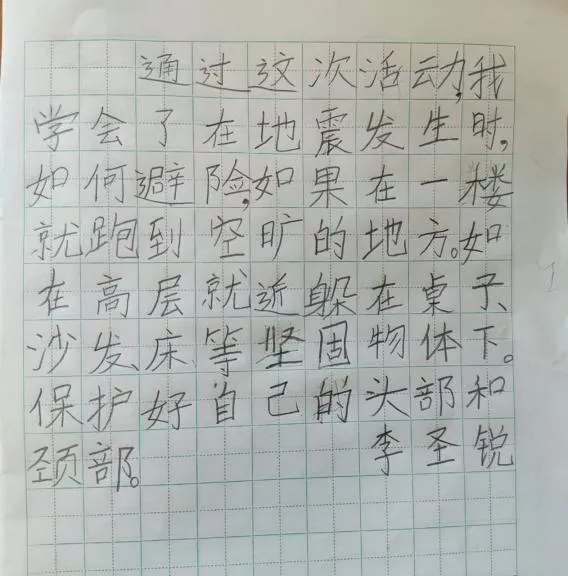 通过这次活动,我
学会了在地震发生时,
如何避险,如果在一楼
就跑到空旷的地方。如
在高层就近躲在桌子、
沙发、床等坚固物体下。
保护好自己的头部和
颈部。 李圣锐